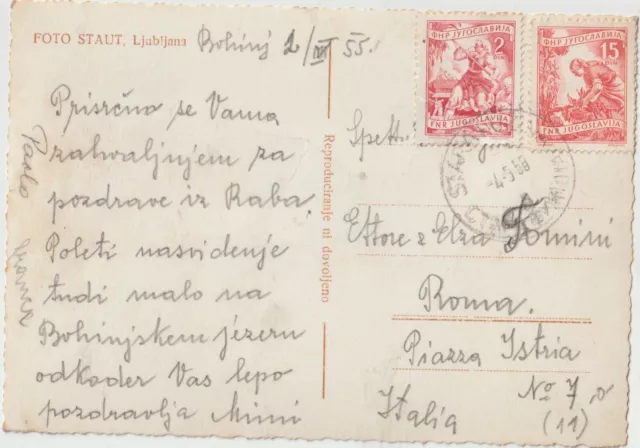 FOTO STAUT, Ljubljana
Bohinj 2/VI 55.
Prisrčno se Vama
zahvaljujem za
pozdrave iz Raba.
Poleti nasvidenje
tudi malo na
Bohinjskem jezeru
odkoder Vas lepo
pozdravlja Mimi
Reproduciranje ni dovoljeno
ФНР ЈУГОСЛАВИЈА
2
FNR JUGOSLAVIJA
ФНР ЈУГОСЛАВИЈА
15
FNR JUGOSLAVIJA
Ettore e Elza Tomini
Roma.
Piazza Istria
No 7,
(11)
Italia